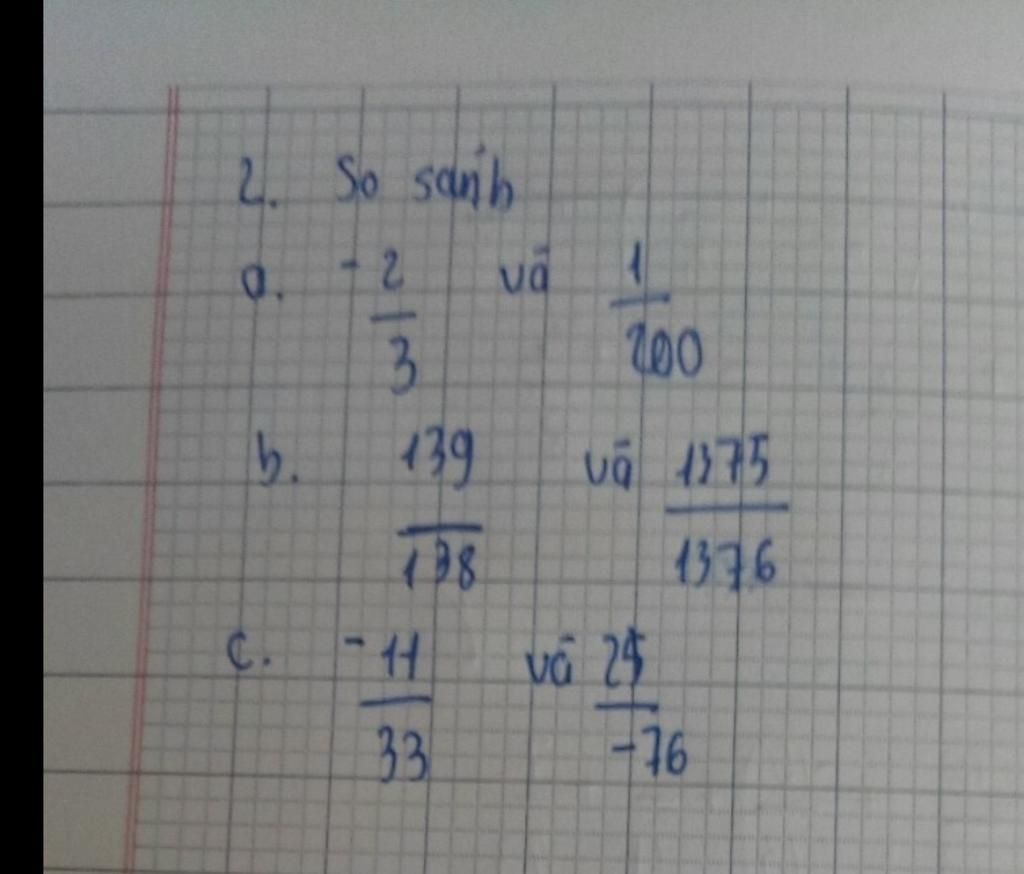 2. So sánh
a. -2/3 và 1/200
b. 139/138 và 1375/1376
c. -11/33 và 25/-76